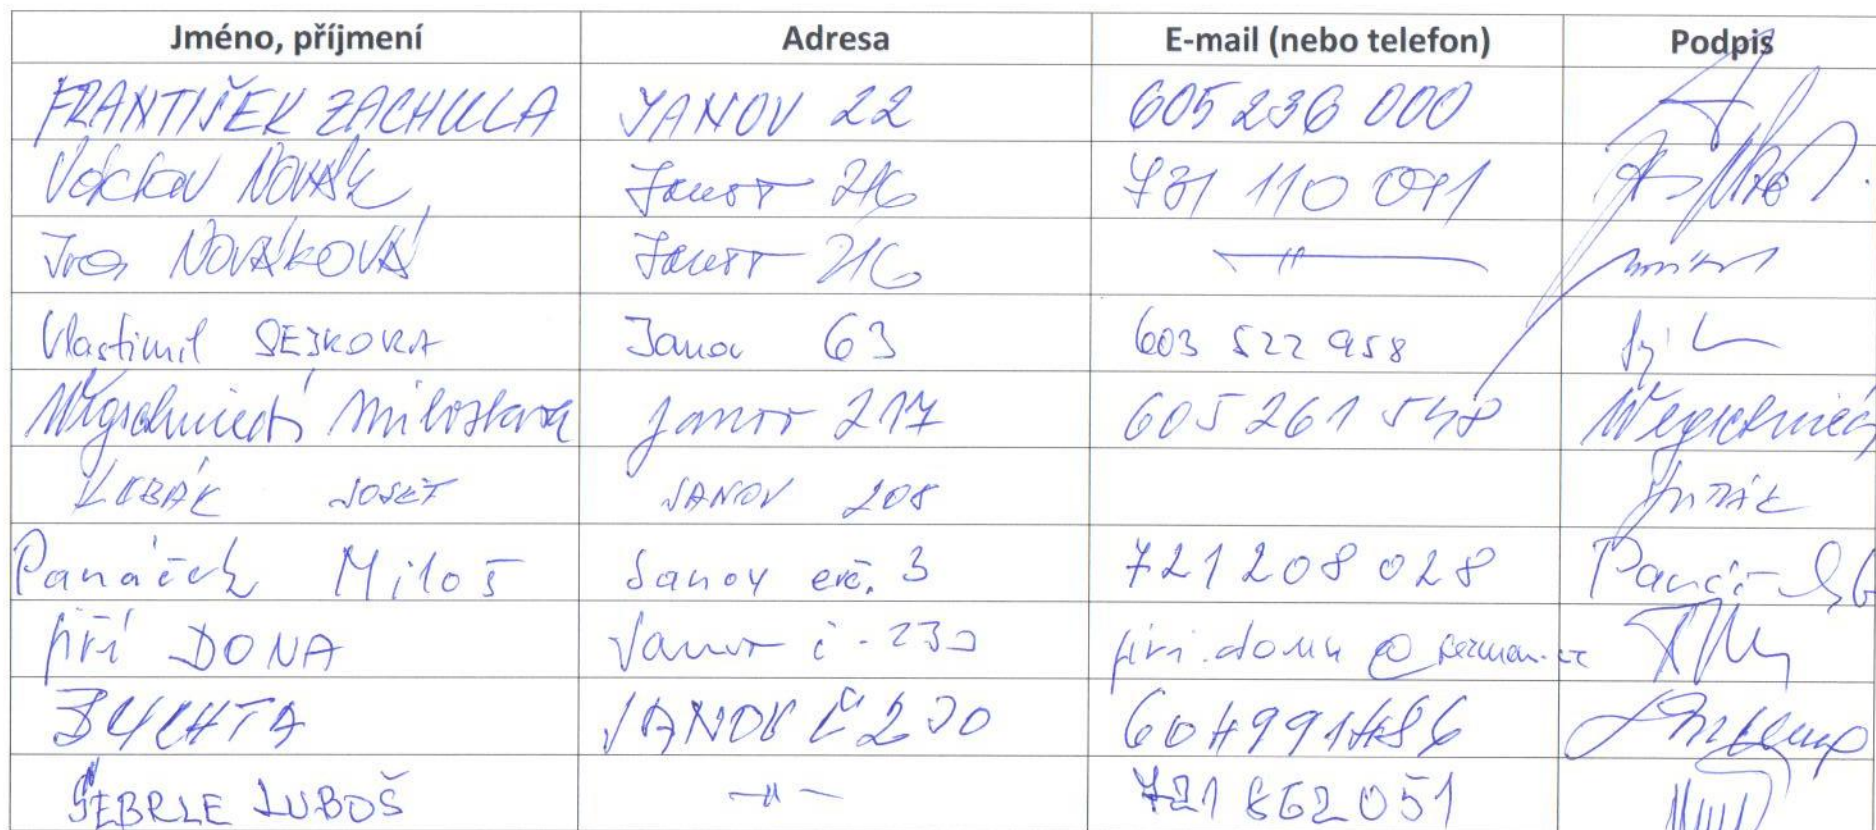 Jméno, příjmení Adresa E-mail (nebo telefon) Podpis
FRANTIŠEK ZACHULA JANOV 22 605 236 000
Václav NOVÁK Janov 216 731 110 091
Iva NOVÁKOVÁ Janov 216 —"—
Vlastimil SEJKORA Janov 63 603 522 958
Miloslava Janov 217 605 261 548
KUBÁK JOSEF JANOV 208
Panáček Miloš Janov evč. 3 721 208 028
Jiří DONA Janov č. 230
BUCHTA JANOV Č 230 604991486
ŠEBRLE LUBOŠ —"— 721 862 051